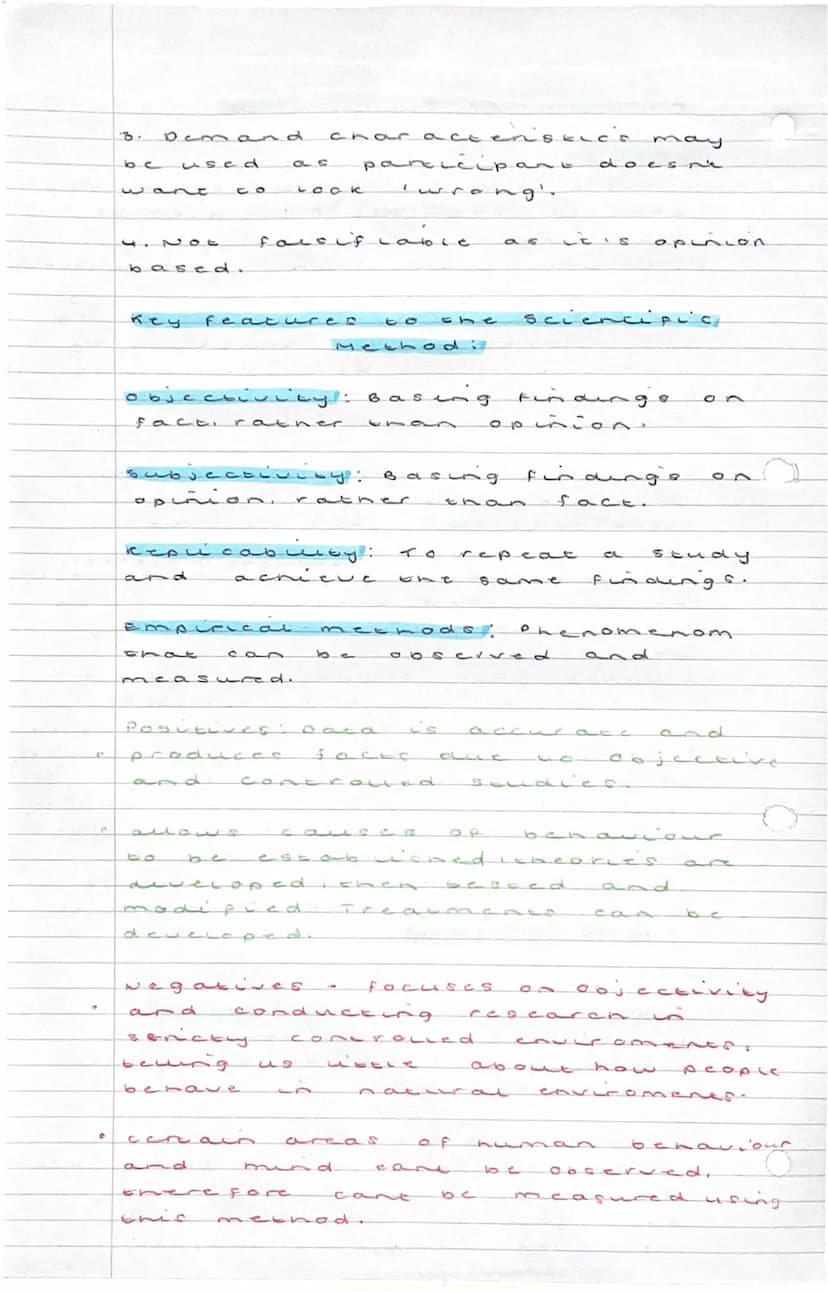 3. Demand characteristics may
be used as participant doesn't
want to look 'wrong'.
4. Not falsifiable as it's opinion
based.
Key features to the scientific
Method:
Objectivity: Basing findings on
fact, rather than opinion.
Subjectivity: Basing findings on
opinion, rather than fact.
Replicability: To repeat a study
and achieve the same findings.
Empirical methods: Phenomenom
that can be observed and
measured.
Positives: Data is accurate and
produces facts due to objective
and controlled studies.
allows causes of behaviour
to be established, theories are
developed, then tested and
modified. Treatments can be
developed.
Negatives - focuses on objectivity
and conducting research in
strictly controlled enviroments,
telling us little about how people
behave in natural enviroments.
certain areas of human behaviour
and mind cant be observed,
therefore cant be measured using
this method.